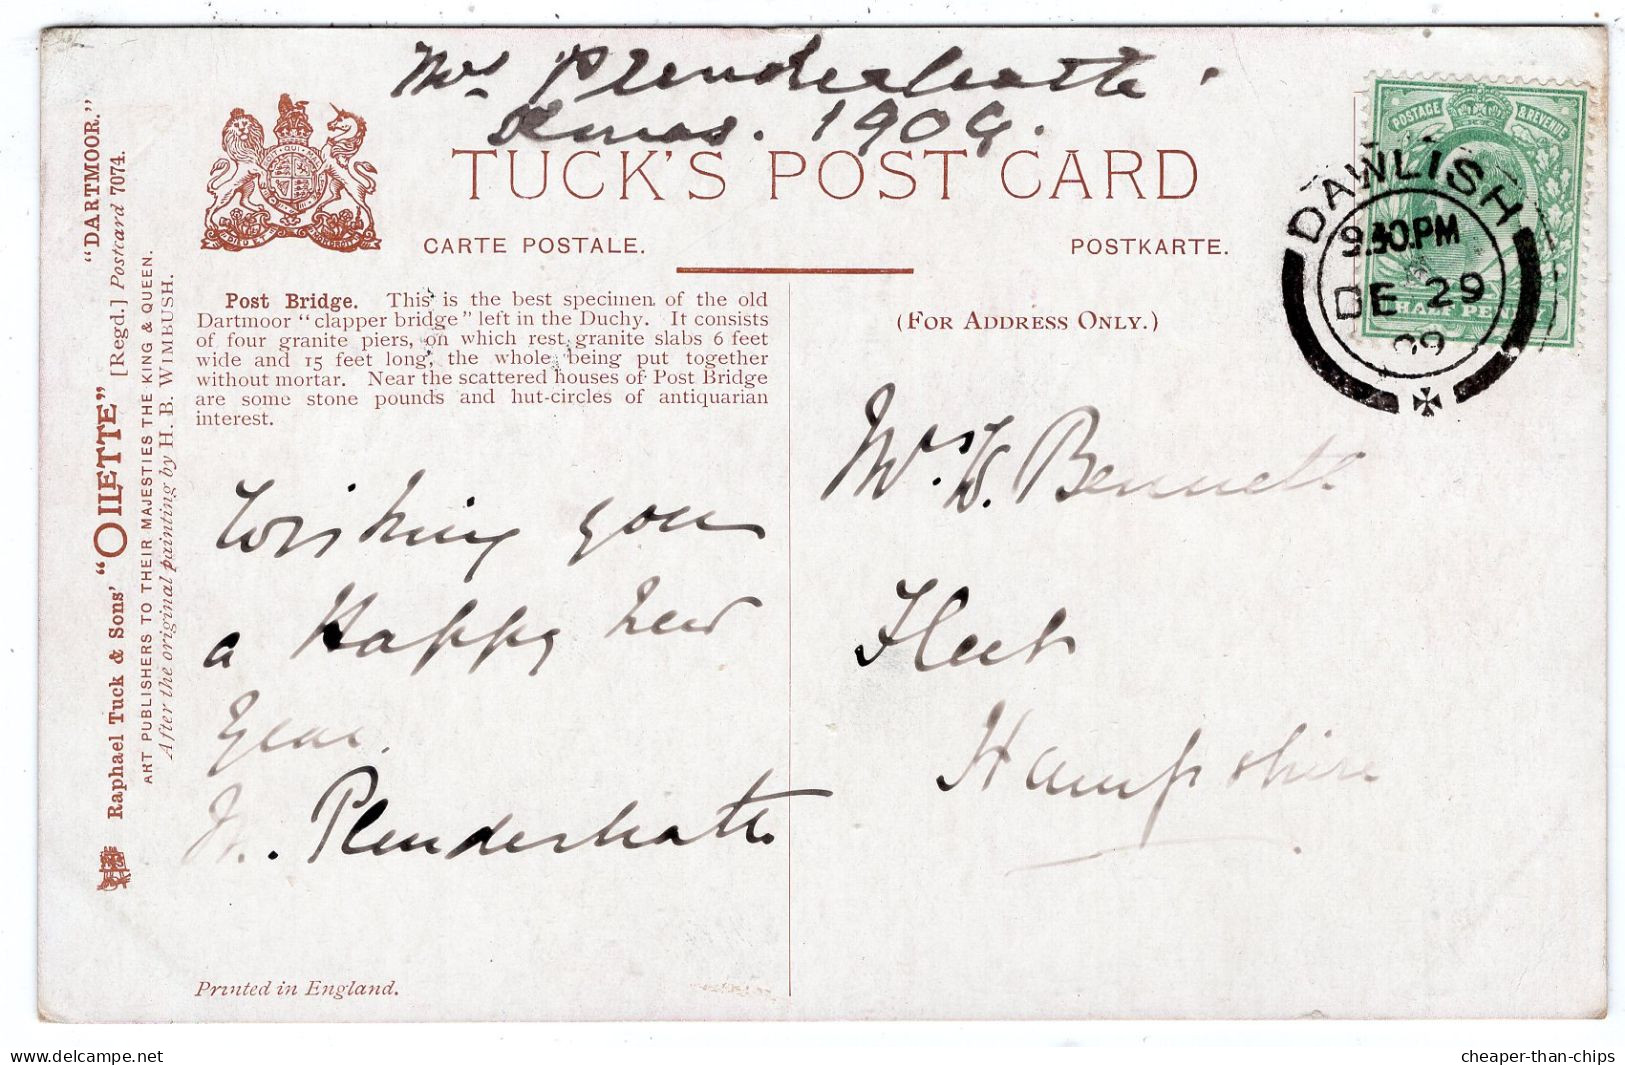 Mrs Plenderleath.
Xmas. 1909.
TUCK'S POST CARD
CARTE POSTALE.
POSTKARTE.
POSTAGE & REVENUE
HALF PENNY
DAWLISH
PM
DE 29
09
"DARTMOOR."
[Regd.] Postcard 7074.
Raphael Tuck & Sons' "OILETTE"
ART PUBLISHERS TO THEIR MAJESTIES THE KING & QUEEN.
After the original painting by H. B. WIMBUSH.
Post Bridge. This is the best specimen of the old
Dartmoor "clapper bridge" left in the Duchy. It consists
of four granite piers, on which rest granite slabs 6 feet
wide and 15 feet long, the whole being put together
without mortar. Near the scattered houses of Post Bridge
are some stone pounds and hut-circles of antiquarian
interest.
(FOR ADDRESS ONLY.)
Wishing you
a Happy New
Year.
Plenderleath
Mrs Bennett
Fleet
Hampshire
Printed in England.
delcampe.net
cheaper-than-chips